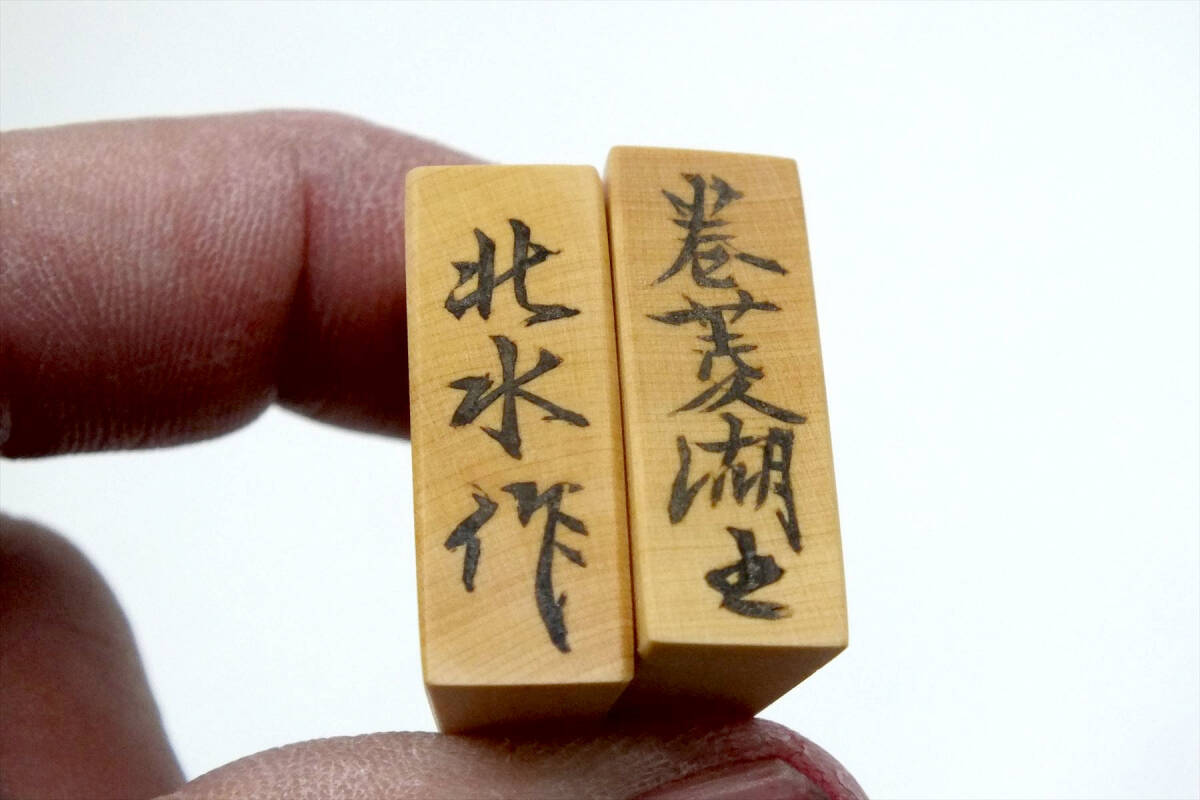 巻菱湖書
北水作